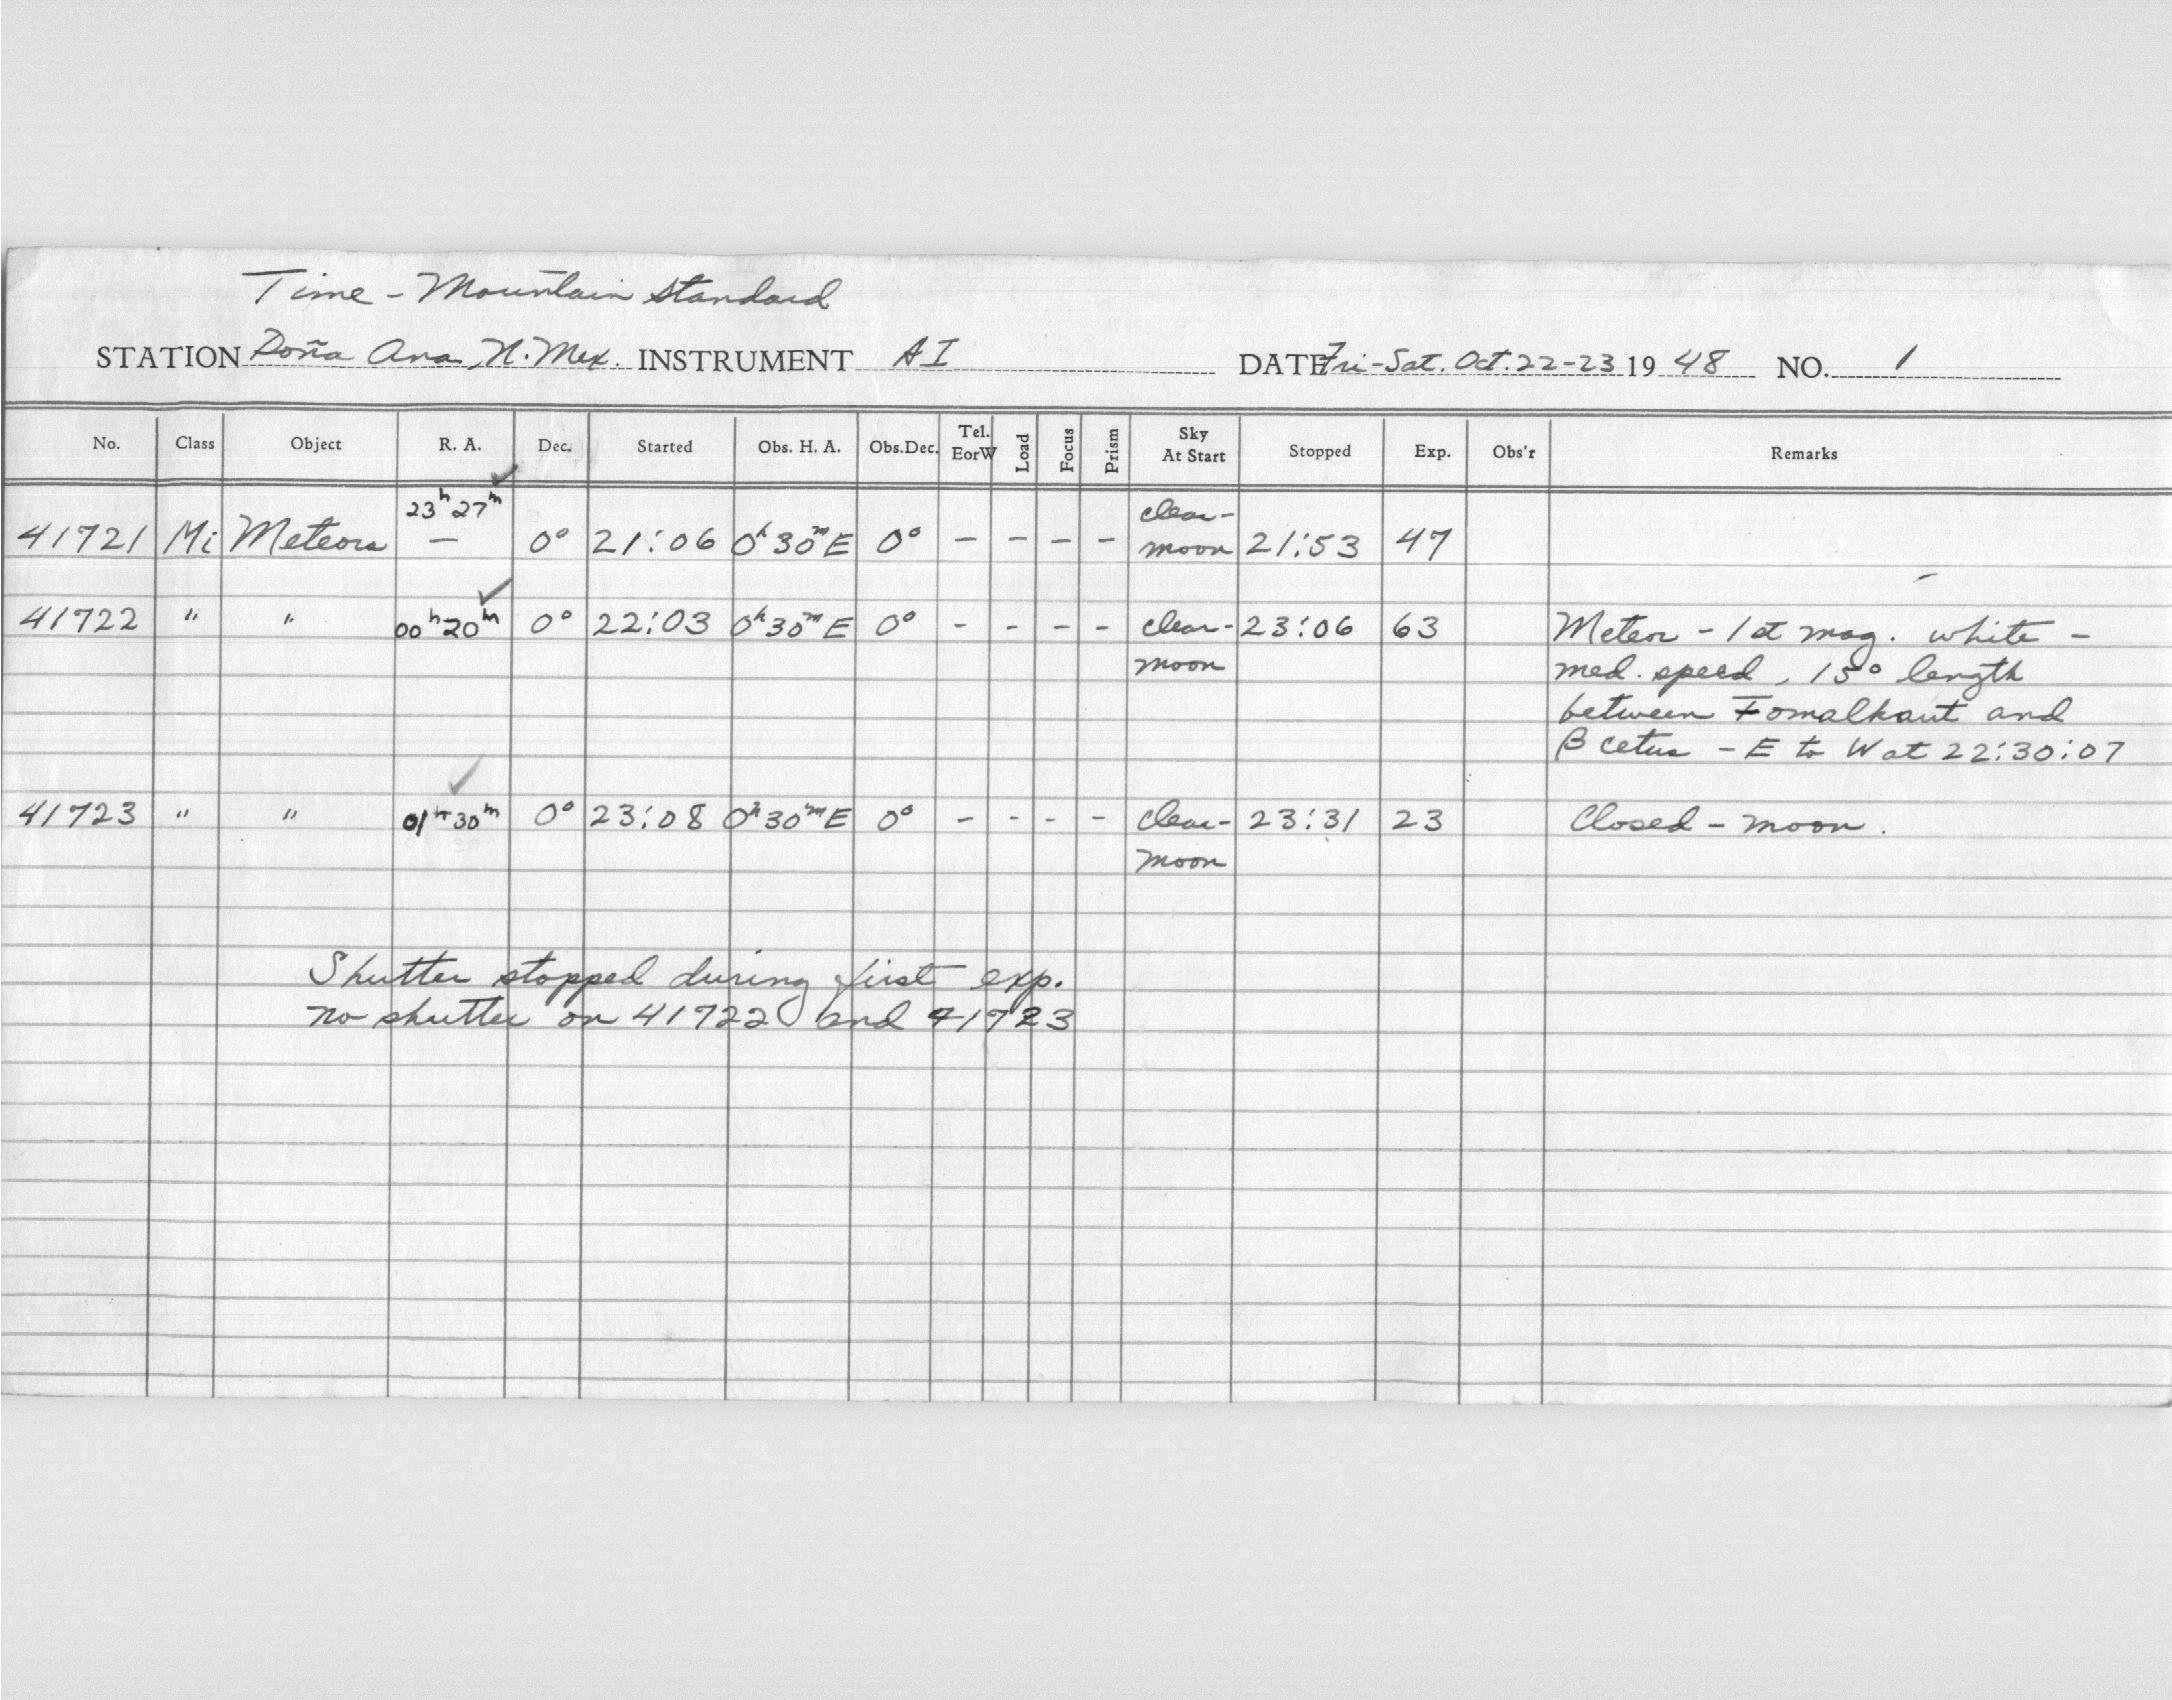 Time - Mountain Standard
STATION Doña Ana, N. Mex. INSTRUMENT AI DATE Fri-Sat. Oct. 22-23 19 48 NO. 1
No. Class Object R. A. Dec. Started Obs. H. A. Obs.Dec. Tel. EorW Load Focus Prism Sky At Start Stopped Exp. Obs'r Remarks
23h 27m clear-
41721 Mi Meteors — 0° 21:06 0h30mE 0° - - - - moon 21:53 47
41722 " " 00h20m 0° 22:03 0h30mE 0° - - - - clear- 23:06 63 Meteor - 1st mag. white -
moon med. speed, 15° length
between Fomalhaut and
β cetus - E to W at 22:30:07
41723 " " 01h30m 0° 23:08 0h30mE 0° - - - - clear- 23:31 23 Closed - moon.
moon
Shutter stopped during first exp.
no shutter on 41722 and 41723